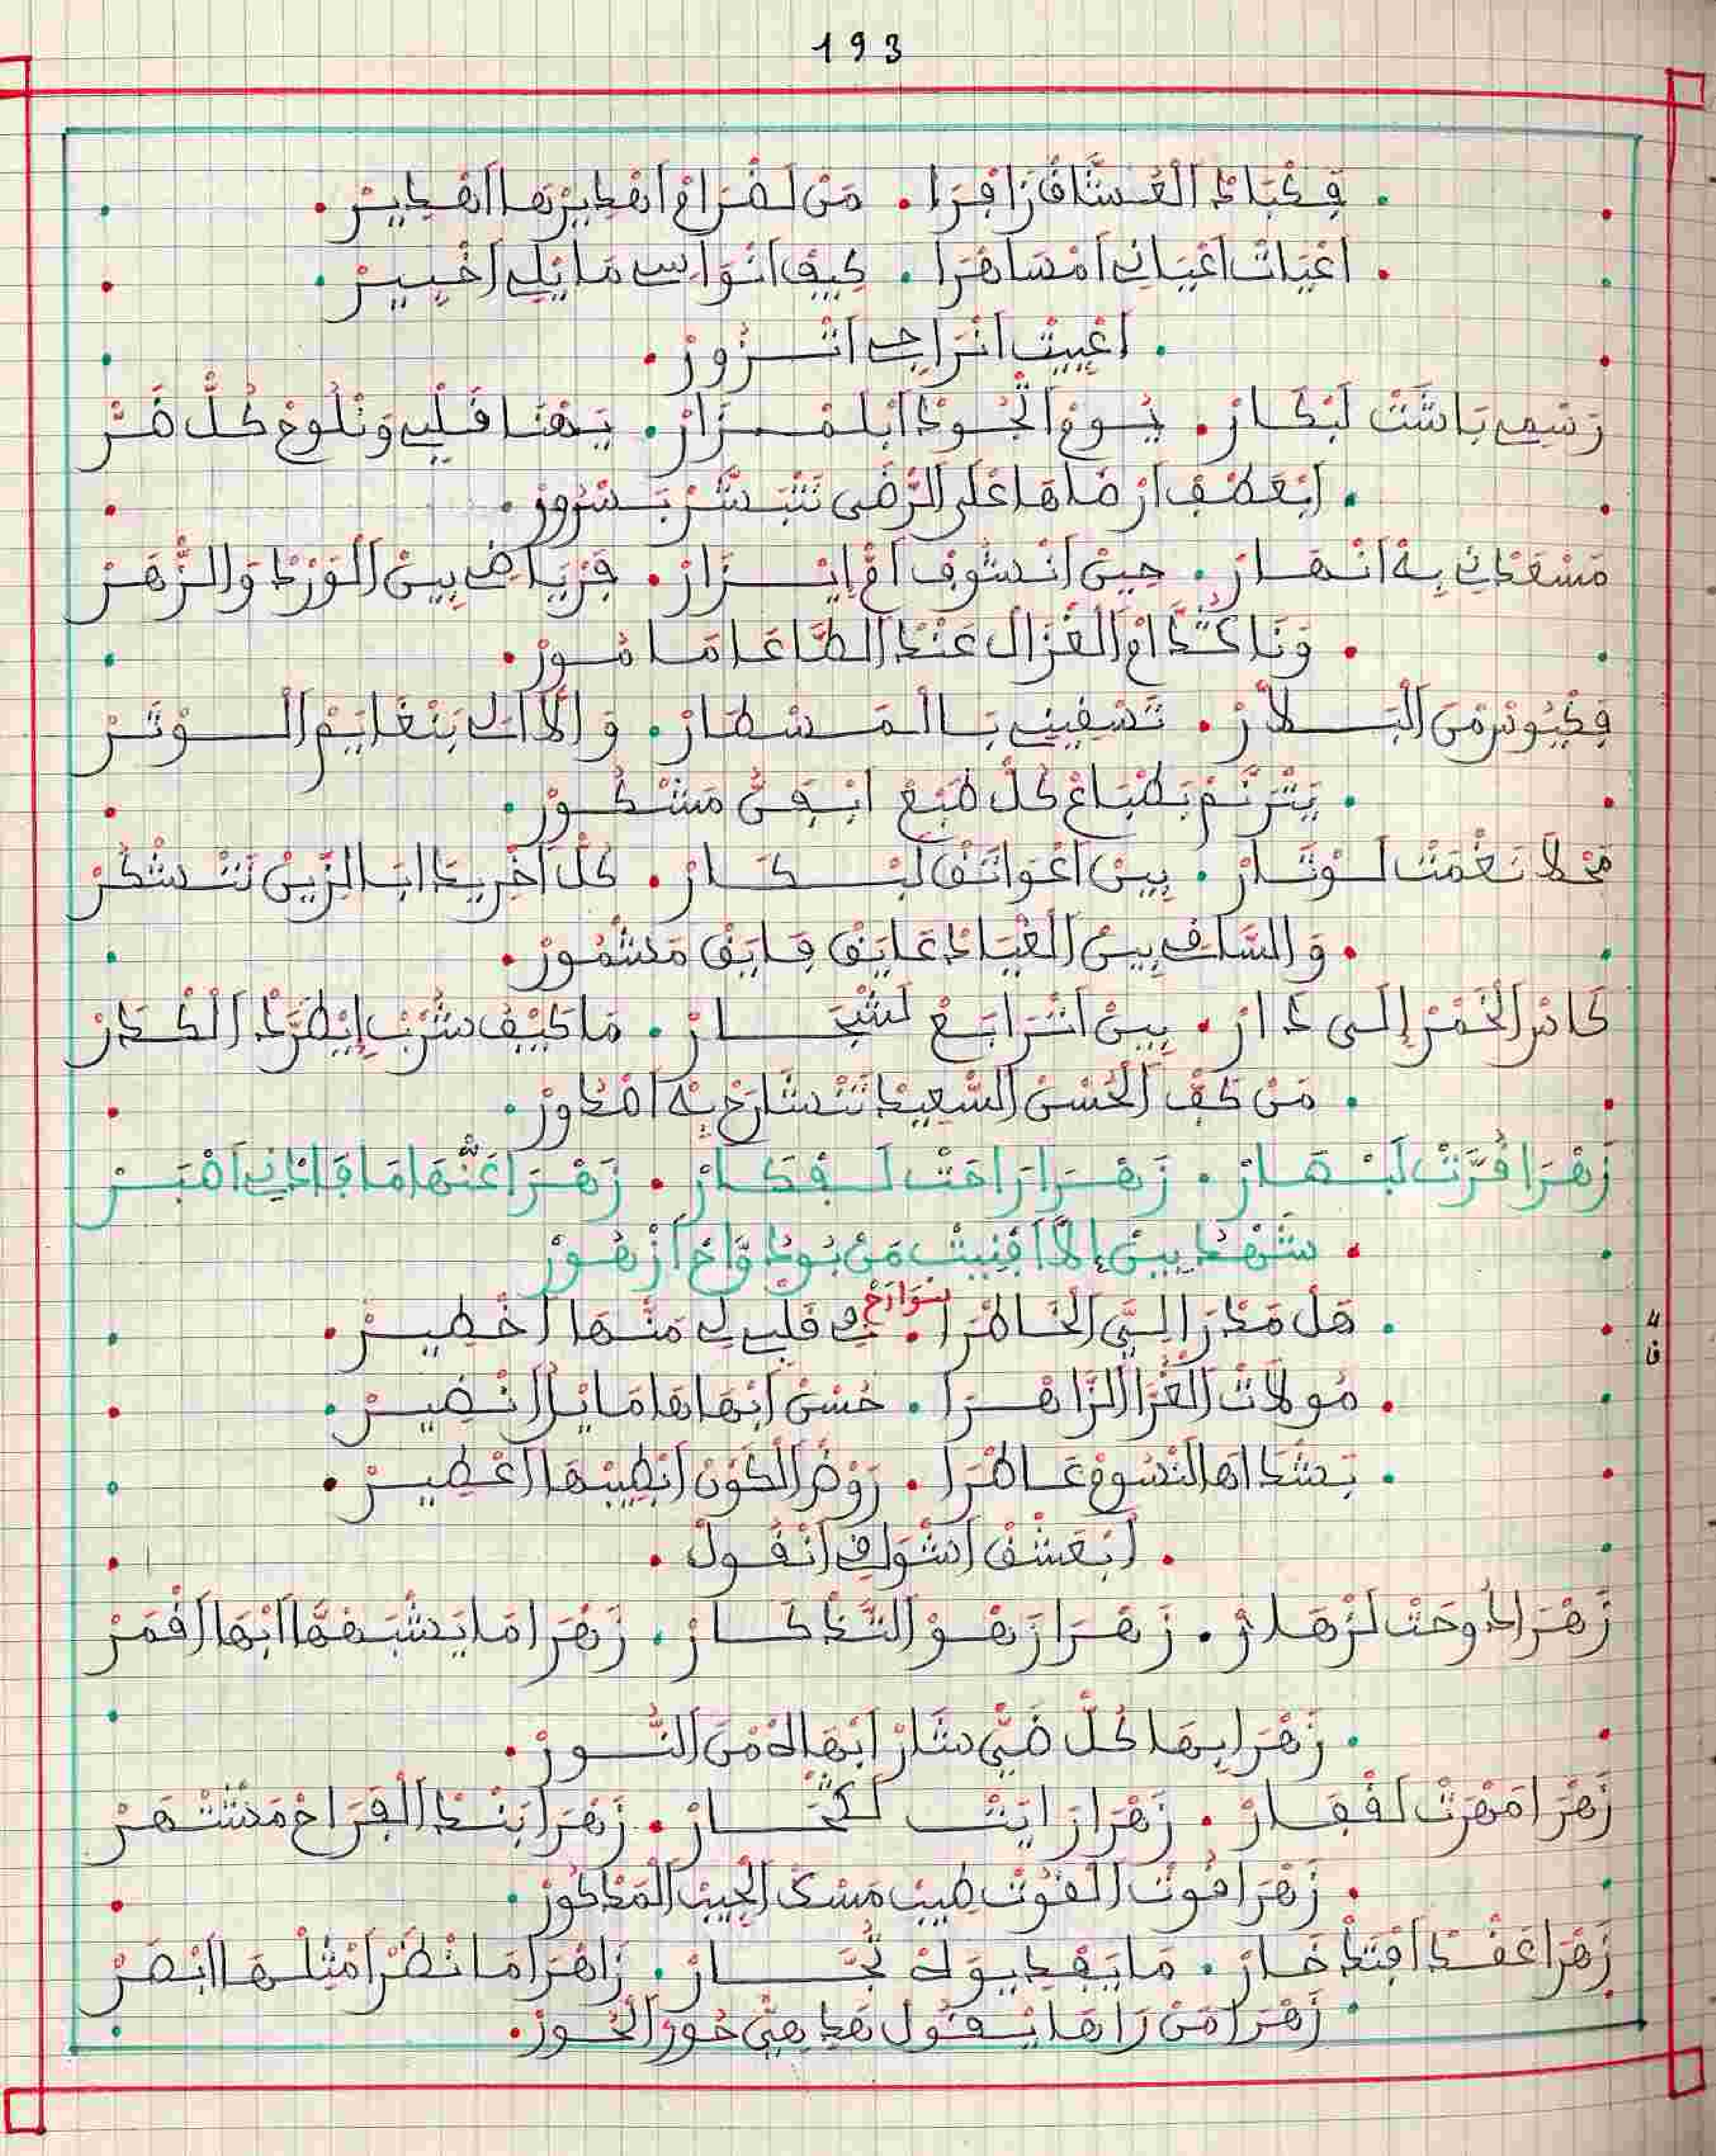 193
فكْبَادْ الْعُشَّاقْ زَافْرَا . مَنْ لَغْرَامْ اهْدِيرْهَا اهْدِيرْ .
اعْيَاتْ اعْيَانِي امْسَاهْرَا . كِيفْ انْوَاسِي مَا يْلِي اخْبِيرْ .
اعْيِيتْ انْرَاجِي اتْزُورْ .
رَسْمِي بَاشَتْ لَبْكَارْ . يُومْ الْجُودْ ابْلَمْزَارْ . يَهْنَا قَلْبِي وَنْلُوحْ كُلّْ ضَرّْ
ابْعَطْفْ ارْضَاهَا عْلَى الرّْضَى نَتْبَشَّرْ بَسْرُورْ .
مَسْعَدْنِي بِهْ انْهَارْ . حِينْ انْشُوفْ امْ إِيزَارْ . فَرْيَاضِي بِينْ الْوَرْدْ وَالزّْهَرْ
وَنَا كَنَّدْ امْ الْغْزَالْ عَنْدْ الطَّاعَا مَامُورْ .
فكْيُوسْ مْنَ الْبَلاَّرْ . تَسْقِينِي بَالْمَسْطَارْ . وَالآلَا بَنْغَايَمْ الْوْتَرْ
يَتْرَنَّمْ بَطْبَاعْ كُلّْ طْبَعْ ابْفَنّْ مَشْكُورْ .
مَحْلاَ نَغْمَتْ لَوْتَارْ . بِينْ اعْوَاتَقْ لَبْكَارْ . كُلّْ اخْرِيدَا ابَالزِّينْ تَنْشْكَرْ
وَالسَّاقِي بِينْ الْغْيَادْ عَايَقْ فَايَقْ مَشْمُورْ .
كَاسْ الْخْمَرْ إِلَى دَارْ . بِينْ اتْرَابَعْ لَشْجَارْ . مَا كِيفْ شُرْبْ إِيْطَرَّدْ الْكْدَرْ
مَنْ كَفّْ الْحُسْنْ السّْعِيدْ تَنْشَارَحْ بِهْ اصْدُورْ .
زَهْرَا قُرَّتْ لَبْهَارْ . زَهْرَا رَاحَتْ لَفْكَارْ . زَهْرَا عَنْهَا مَا فَادْنِي اصْبَرْ
شَهْدْ بِينْ إلاَّ افْنِيتْ مَنْ بُودْوَّاحْ ازْهُورْ
هَلْ مَدْرَا لِيَّ الْخَاطْرَا . فِي قَلْبِي لِي مَنْهَا اخْطِيرْ .
سْوَارَحْ
مُولاَتْ الْغُرَّا الزَّاهْرَا . حُسْنْ ابْهَاهَا مَا يْلُ انْضِيرْ .
بَشْدَاهَا النّْسُومْ عَاطْرَا . رَوْضْ الْكَوْنْ ابْطِيبْهَا اعْطِيرْ .
ابْعَشْقْ اشْوَاقْ انْقُولْ .
زَهْرَا دُوحَتْ لَزْهَارْ . زَهْرَا زَهْوْ التَّذْكَارْ . زَهْرَا مَا يَشْبَهْهَا ابْهَا اقْمَرْ
زَهْرَا بِهَا كُلّْ ضَيّْ سَّارْ ابْهَالَهْ مْنَ النُّورْ .
زَهْرَا مَهْرَتْ لَفْقَارْ . زَهْرَا رَايَتْ لَكْحَارْ . زَهْرَا بَنْدْ الْفْرَاحْ مَشْتْهَرْ
زَهْرَا قُوتْ الْقُوتْ طِيبْ مَسْكْ الْجِيبْ الْمَدْكُورْ .
زَهْرَا عَقْدْ افْتَخَارْ . مَا يَفْدِيوَهْ تُجَّارْ . زَاهْرَا مَا نَظْرْ امْثِلْهَا ابْصَرْ
زَهْرَا مَنْ رَاهَا يْقُولْ هَدِ هِيَّ حُورْ الْحُورْ .
ق 4